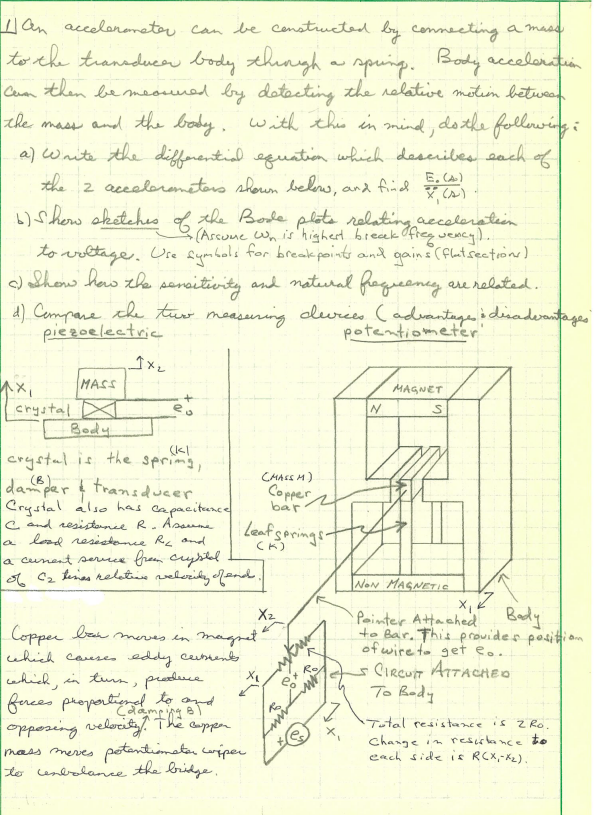 1) An accelerometer can be constructed by connecting a mass
to the transducer body through a spring. Body acceleration
can then be measured by detecting the relative motion between
the mass and the body. With this in mind, do the following:
a) Write the differential equation which describes each of
the 2 accelerometers shown below, and find E₀(s)/Ẍ₁(s).
b) Show sketches of the Bode plots relating acceleration
(Assume ωn is highest break frequency).
to voltage. Use symbols for breakpoints and gains (flat sections)
c) Show how the sensitivity and natural frequency are related.
d) Compare the two measuring devices (advantages & disadvantages
piezoelectric
potentiometer
X₂
X₁
MASS
crystal
+
e₀
Body
crystal is the spring, (K)
damper (B) & transducer
Crystal also has capacitance
C and resistance R. Assume
a load resistance RL and
a current source from crystal
of C₂ times relative velocity of ends.
Copper bar moves in magnet
which causes eddy currents
which, in turn, produce
forces proportional to and
opposing velocity. (damping B) The copper
mass moves potentiometer wiper
to unbalance the bridge.
MAGNET
N S
(MASS M)
Copper
bar
Leaf springs
(K)
NON MAGNETIC
X₁
Body
X₂
Pointer Attached
to Bar. This provides position
of wire to get e₀.
X₁
e₀
+
R₀
CIRCUIT ATTACHED
To Body
R₀
+
es
X₁
Total resistance is 2R₀.
Change in resistance to
each side is R(X₁-X₂).